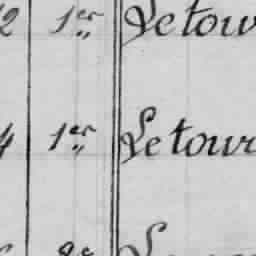 2 1er Letour
4 1er Letour